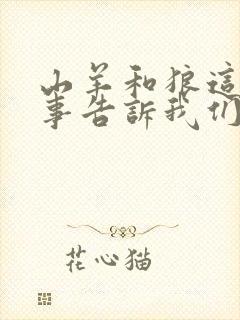 山羊和狼這
事告訴我们
花心猫